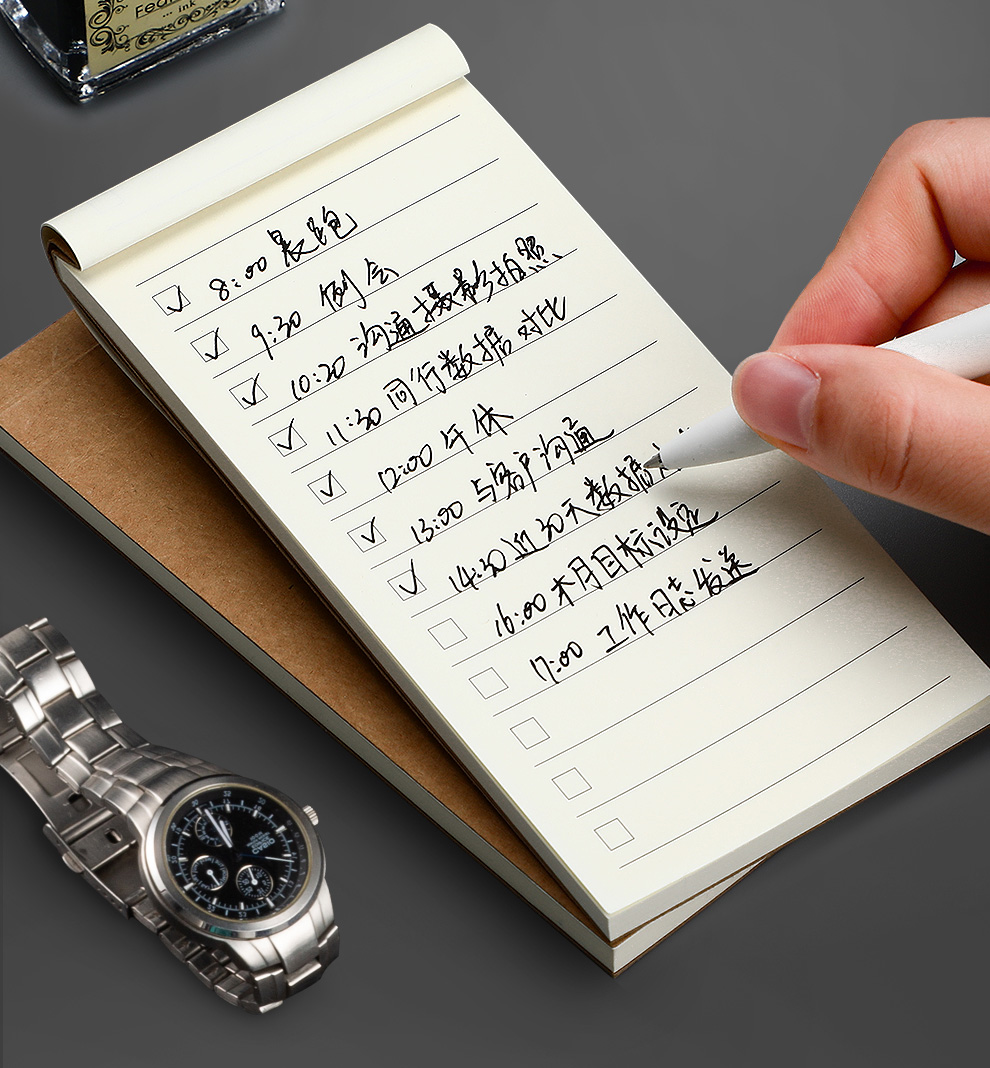 ... ink
8:00 晨跑
9:30 例会
10:20 沟通摄影拍照
11:30 同行数据对比
12:00 午休
13:00 与客户沟通
14:30 近30天数据
16:00 本月目标设定
17:00 工作日志发送